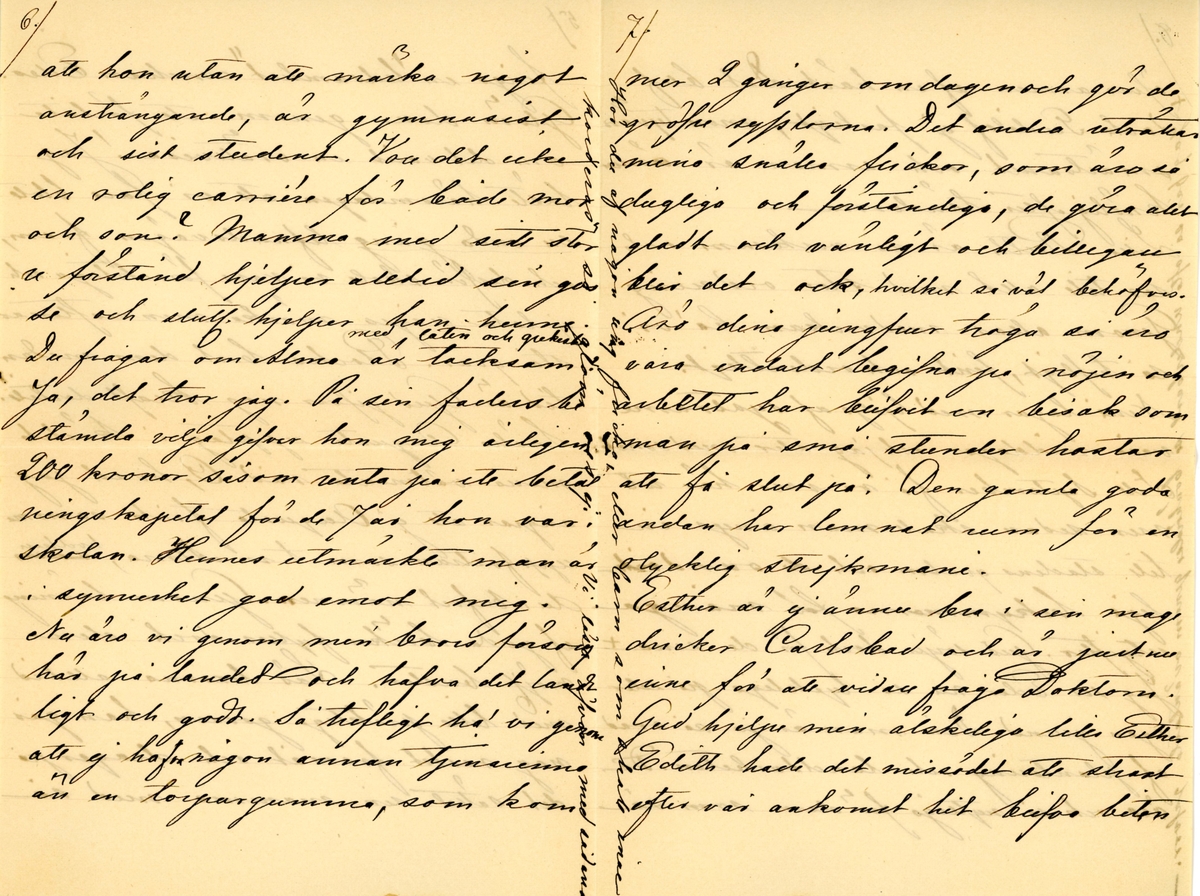 6./
att hon utan att märka något
ansträngande, är gymnasist
och sist student. Var det icke
en rolig carrière för både mor
och son? Mamma med sitt stor
a förstånd hjelper alltid sin gos
se och slutl. hjelper han henne
med latin och grekiska
Du frågar om Alma är tacksam
Ja, det tror jag. På sin faders be
stämda vilja gifver hon mig årligen
200 kronor såsom ränta på ett betal
ningskapital för de 7 år hon var i
skolan. Hennes utmärkte man är
i synnerhet god emot mig.
Nu äro vi genom min brors försorg
här på landet och hafva det lant
ligt och godt. Så trefligt ha' vi genom
att ej hafva någon annan tjenarinna
än en torpargumma, som kom
7./
mer 2 gånger om dagen och gör de
gröfre sysslorna. Det andra uträtta
mina snälla flickor, som äro så
dugliga och förståndiga, de göra allt
gladt och vänligt och billigare
blir det ock, hvilket så väl behöfves.
Äro dina jungfrur tröga så äro
våra endast begifna på nöjen och
arbetet har blifvit en bisak som
man på små stunder hastar
att få slut på. Den gamla goda
andan har lemnat rum för en
olycklig strejkmani.
Esther är ej ännu bra i sin mage
dricker Carlsbad och är just nu
inne för att vidare fråga Doktorn.
Gud hjelpe min älskeliga lilla Esther
Edith hade det missödet att strax
efter vår ankomst hit blifva biten
Hör du af någon ung
eller barn som skall inac